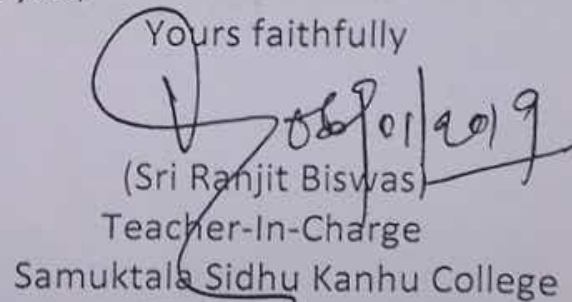 Yours faithfully
08/01/2019
(Sri Ranjit Biswas)
Teacher-In-Charge
Samuktala Sidhu Kanhu College